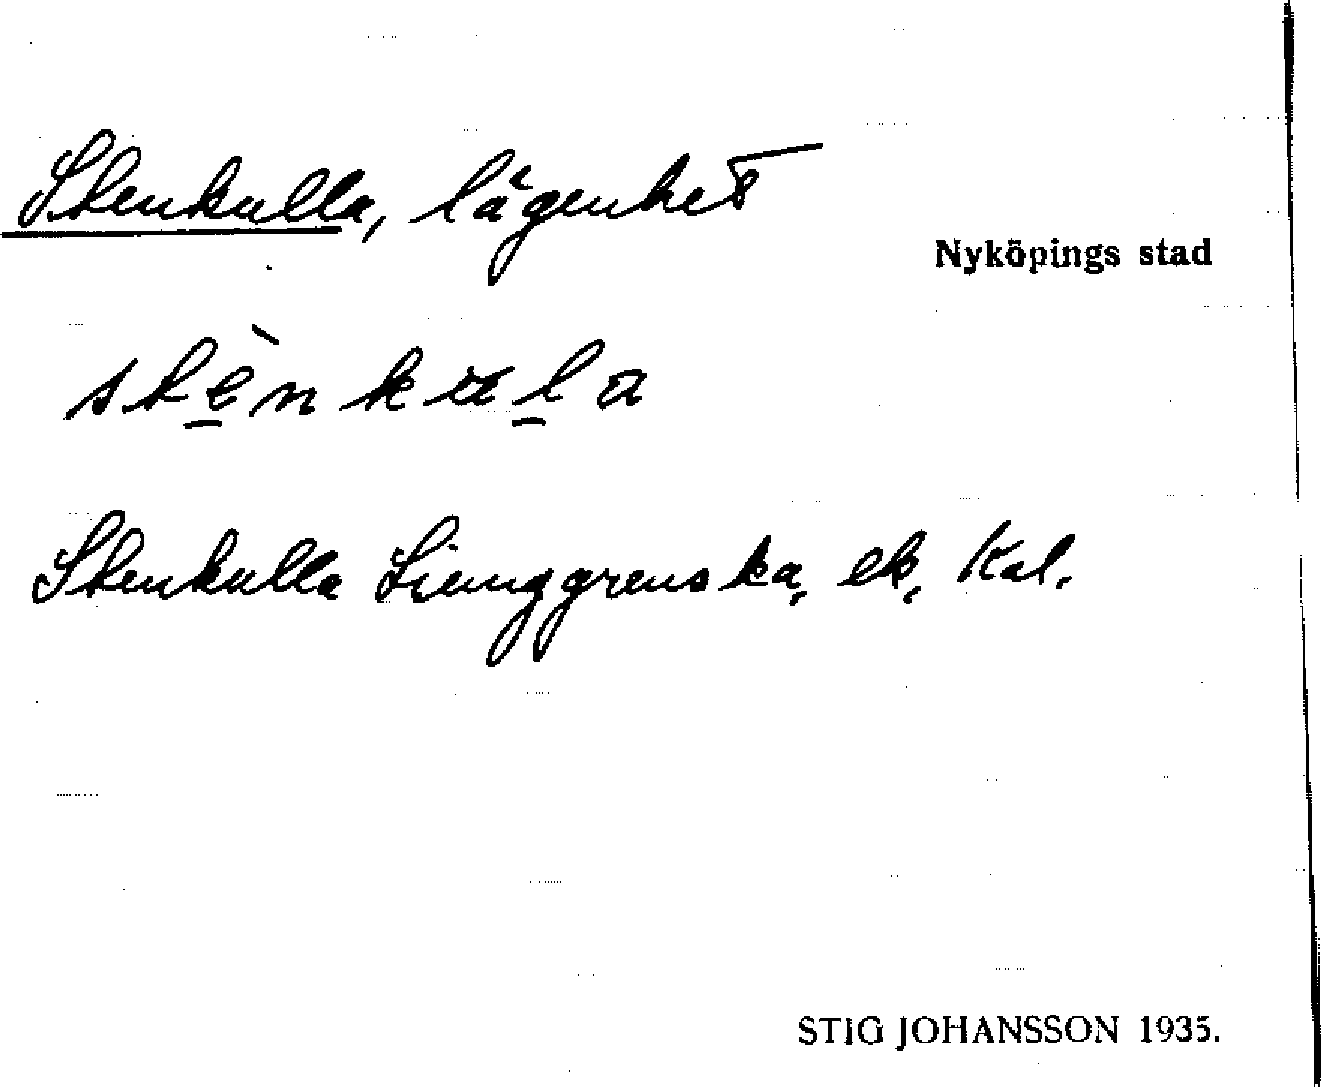 Stenkulla, lägenhet
Nyköpings stad
stè̱nkuḻa
Stenkulla Liunggrenska, ek. Kal.
STIG JOHANSSON 1935.